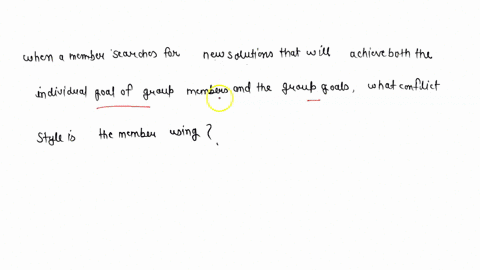 when a member searches for new solutions that will achieve both the
individual goal of group members and the group goals, what conflict
style is the member using?